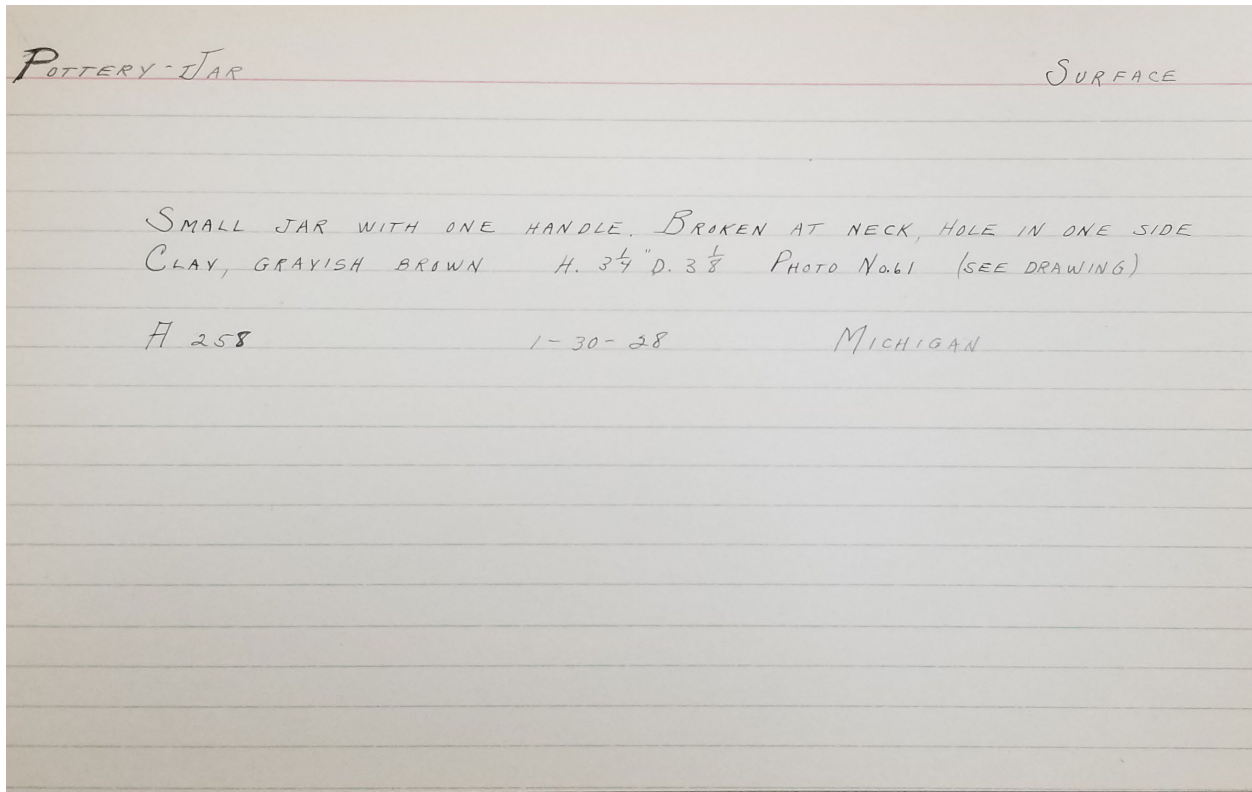 POTTERY - JAR SURFACE
SMALL JAR WITH ONE HANDLE. BROKEN AT NECK, HOLE IN ONE SIDE
CLAY, GRAYISH BROWN H. 3 1/4" D. 3 1/8 PHOTO No. 61 (SEE DRAWING)
A 258 1-30-28 MICHIGAN